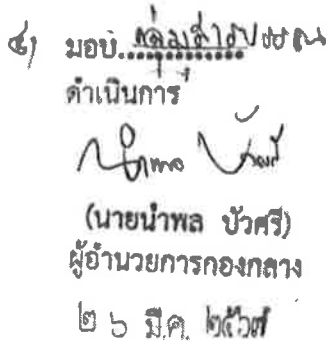 ๔) มอบ กลุ่มสารบรรณ
ดำเนินการ
(นายนำพล บัวศรี)
ผู้อำนวยการกองกลาง
๒๖ มี.ค. ๒๕๖๗